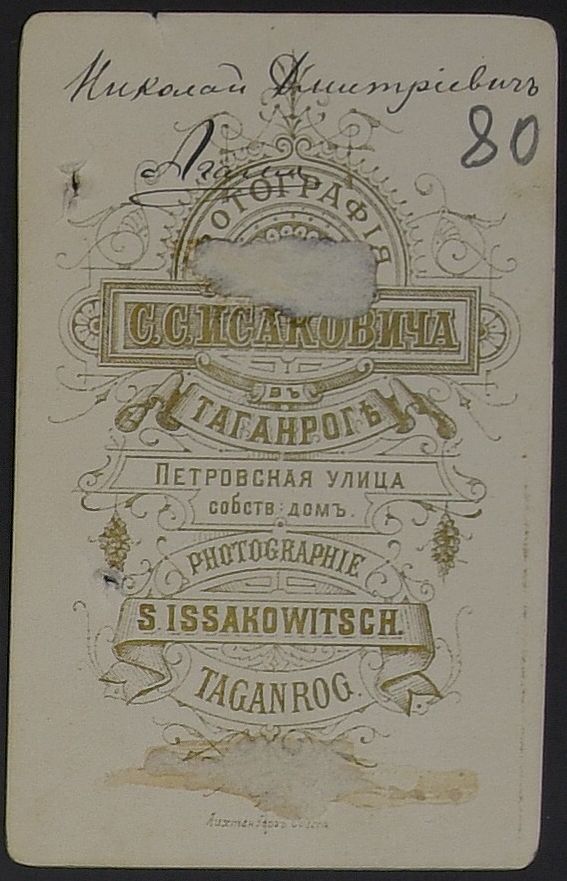 Николай Дмитріевичъ
80
ФОТОГРАФІЯ
С.С.ИСАКОВИЧА
ВЪ
ТАГАНРОГѢ
ПЕТРОВСКАЯ УЛИЦА
собств: домъ.
PHOTOGRAPHIE
S. ISSAKOWITSCH.
TAGANROG.